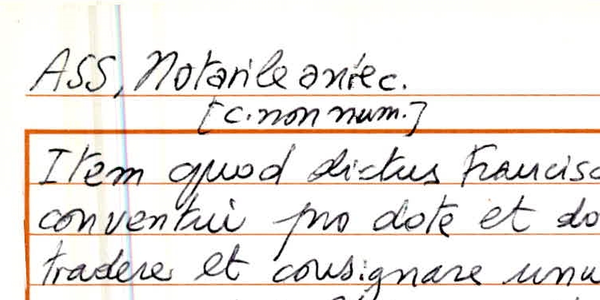 ASS, Notarile antec.
[c. non num.]
Item quod dictus Francisc
conventui pro dote et do
tradere et consignare unu